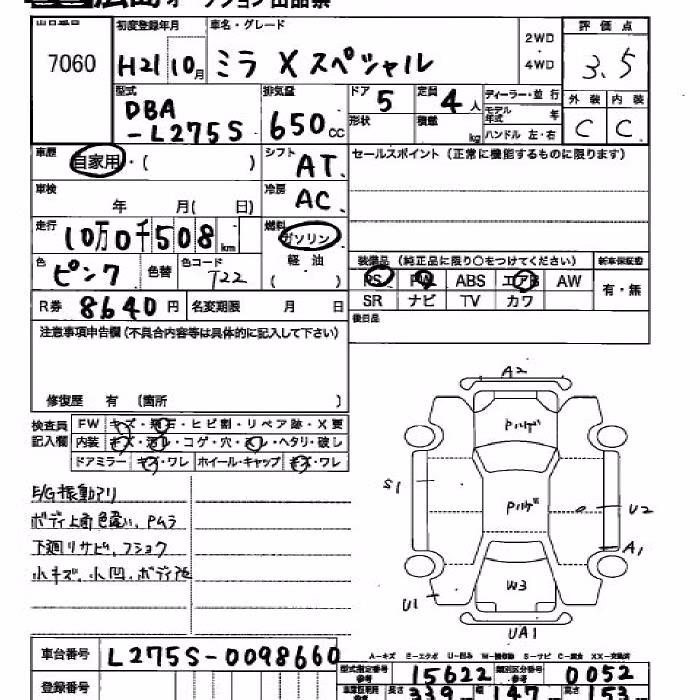 広島オークション出品票
出品番号 初度登録年月 車名・グレード 2WD・4WD 評価点
7060 H21 10月 ミラ Xスペシャル 3.5
型式 排気量 ドア 5 定員 4人 ディーラー・並行 外装 内装
DBA-L275S 650cc 形状 積載 kg モデル年式 年 C C
ハンドル 左・右
車歴 自家用・( ) シフト AT セールスポイント(正常に機能するものに限ります)
車検 年 月( 日) 冷房 AC
走行 10万0千508km 燃料 ガソリン 軽油 ( )
装備品(純正品に限り○をつけてください) 新車保証書
色 ピンク 色替 色コード T22 PS PW ABS エアB AW 有・無
R券 8640円 名変期限 月 日 SR ナビ TV カワ
注意事項申告欄(不具合内容等は具体的に記入して下さい) 後日品
修復歴 有 (箇所 )
検査員記入欄 FW キズ・飛石・ヒビ割・リペア跡・X要
内装 キズ・汚レ・コゲ・穴・スレ・ヘタリ・破レ
ドアミラー キズ・ワレ ホイール・キャップ キズ・ワレ
A2
Pハゲ
S1
Pハゲ
U2
A1
W3
U1
UA1
E/G振動アリ
ボディ上面色違い、Pムラ
下廻リサビ、フショク
小キズ、小凹、ボディ他
A-キズ E-エクボ U-凹み W-補修跡 S-サビ C-腐食 XX-交換済
車台番号 L275S-0098660
型式指定番号 参考 15622 類別区分番号 参考 0052
登録番号
長さ 339 幅 147 高さ 153